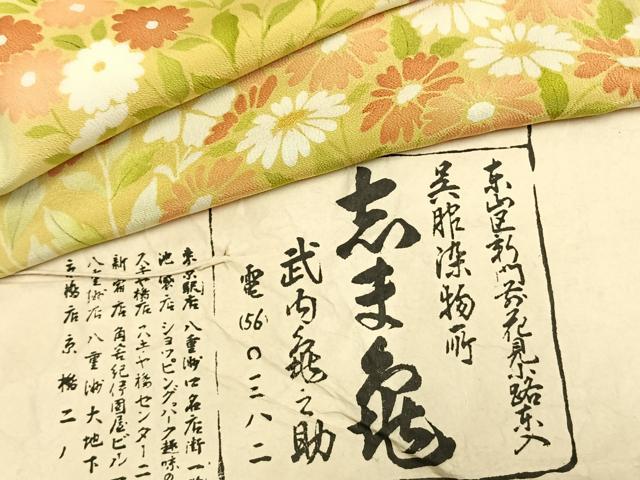 東山区新門前花見小路東入
呉服染物所
志ま亀
武内亀之助
電(56)〇三八二
東京駅店 八重洲口名店街 一
池袋店 ショッピングパーク趣味の
スキヤ橋店 スキヤ橋センター二
新宿店 角筈紀伊國屋ビル 一
八重洲店 八重洲大地下
京橋店 京橋二ノ